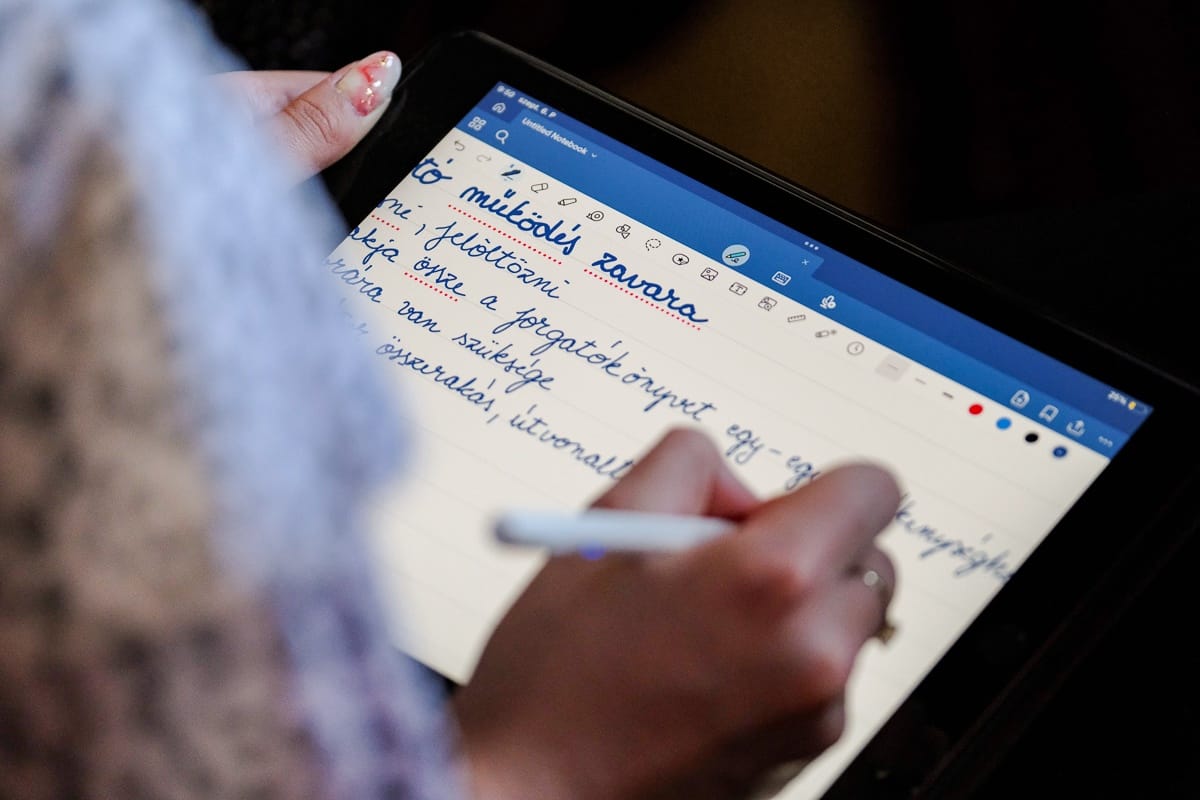 9:50 szept. 6. P
25%
Untitled Notebook
tó működés zavara
ni, felöltözni
akja össze a forgatókönyvet egy-egy
van szüksége
összerakás, útvonalt